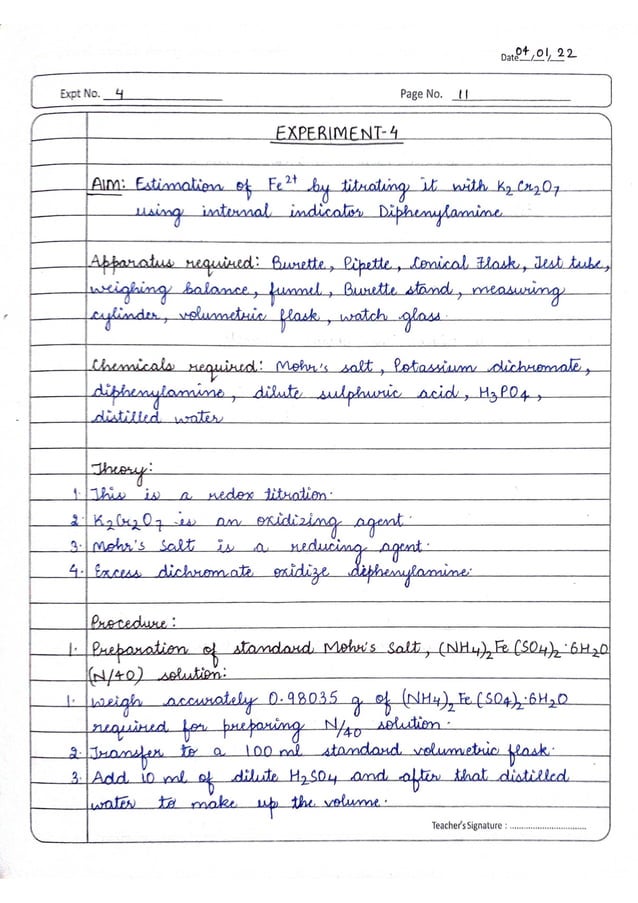 Date 04/01/22
Expt No. 4 Page No. 11
EXPERIMENT-4
AIM: Estimation of Fe²⁺ by titrating it with K₂Cr₂O₇
using internal indicator Diphenylamine
Apparatus required: Burette, Pipette, Conical Flask, Test tube,
weighing balance, funnel, Burette stand, measuring
cylinder, volumetric flask, watch glass.
Chemicals required: Mohr's salt, Potassium dichromate,
diphenylamine, dilute sulphuric acid, H₃PO₄,
distilled water
Theory:
1. This is a redox titration.
2. K₂Cr₂O₇ is an oxidizing agent.
3. Mohr's Salt is a reducing agent.
4. Excess dichromate oxidize diphenylamine.
Procedure:
1. Preparation of standard Mohr's Salt, (NH₄)₂Fe(SO₄)₂·6H₂O
(N/40) solution:
1. Weigh accurately 0.98035 g of (NH₄)₂Fe(SO₄)₂·6H₂O
required for preparing N/40 solution.
2. Transfer to a 100 ml standard volumetric flask.
3. Add 10 ml of dilute H₂SO₄ and after that distilled
water to make up the volume.
Teacher's Signature : ..............................